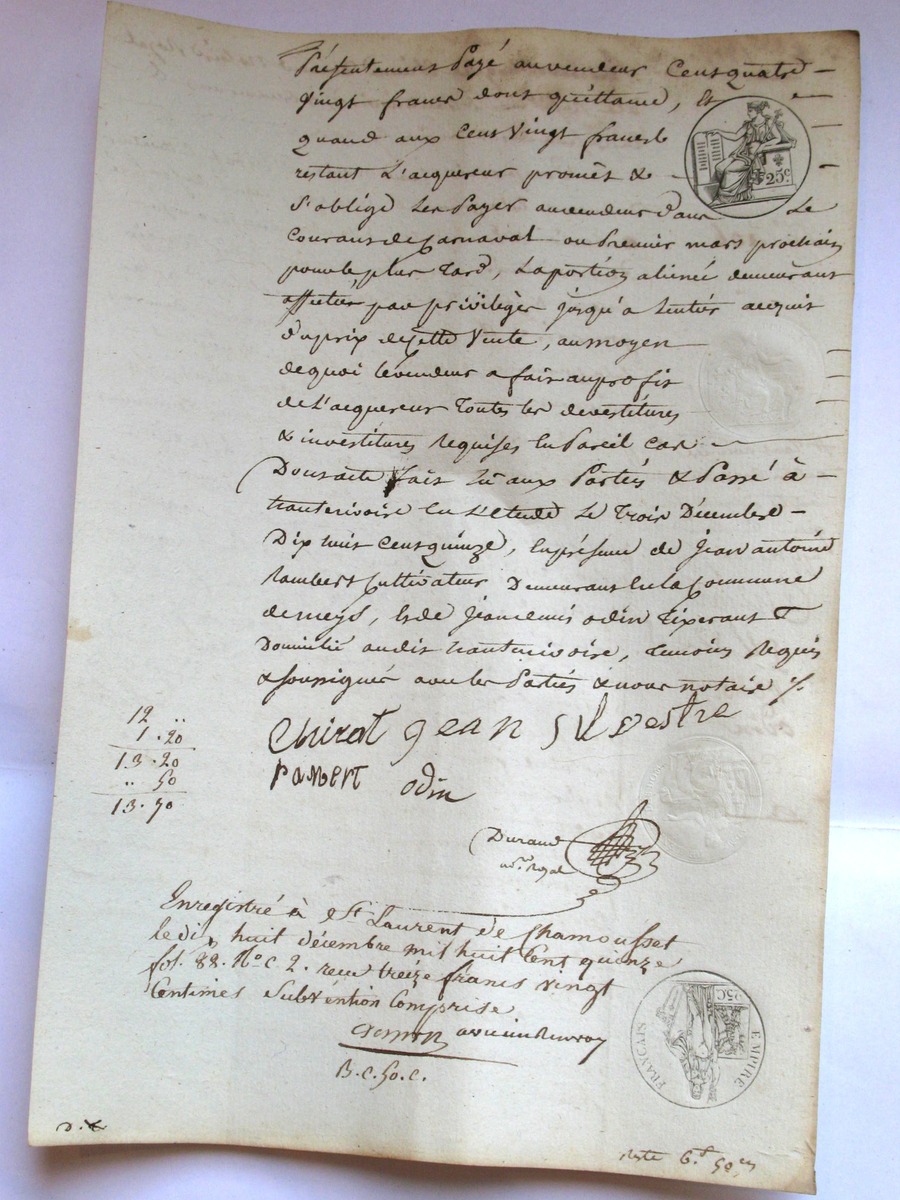 Présentement Payé au vendeur Cent quatre -
vingt francs dont quittance, Et
quand aux Cent Vingt francs
restant L'acquereur promèt &
S'oblige Les Payer au vendeur dans Le
Courant de Carnaval ou Premier mars prochain
pour le plus Tard, La portion alienée demeurant
affectée par privilège jusqu'a Lentier acquit
du prix de Cette Vente, au moyen
de quoi le vendeur a fait au profit
de L'acquereur Toutes les devestitures
& investitures Requises En Pareil Cas
Dont acte fait Lu aux Parties & Passé à -
hauterivoire En L'Etude Le Trois Décembre -
Dix huit Cent quinze, En présence de Jean antoine
Rambert Cultivateur Demeurant En la Commune
de meys, & de Jean denis odin Tixerant
Domicilié audit hauterivoire, Temoins Requis
& soussignés avec les Parties & nous notaire %
Chirat jean silvestre
rambert odin
12 ..
1 . 20
13 . 20
.. 50
13 . 70
Durand
no.re Royal
Enregistré à St Laurent de Chamousset
le dix huit décembre mil huit Cent quinze
fol. 88. R.o C. 2. reçu treize francs vingt
Centimes Subvention Comprise
B. C. 50. C.
Reste 6.f 50.cs
25 C.
EMPIRE FRANÇAIS
25 C